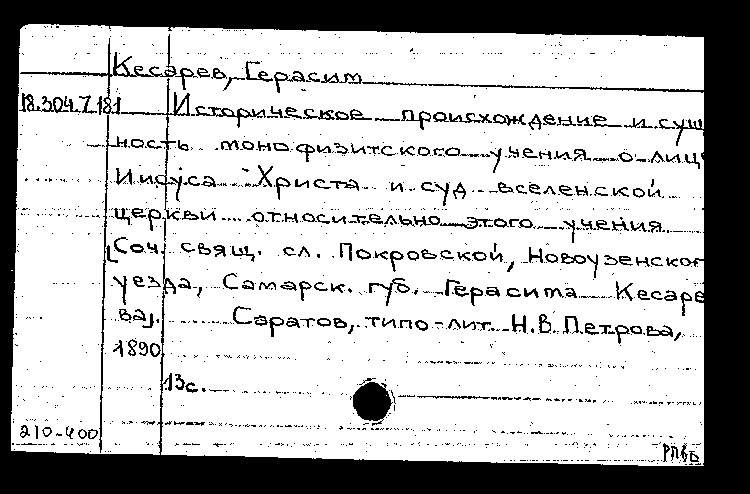 Кесарев, Герасим
18.304.7.181 Историческое происхождение и сущ
ность монофизитского учения о лице
Иисуса Христа и суд вселенской
церкви относительно этого учения
[Соч. свящ. сл. Покровской, Новоузенског
уезда, Самарск. губ. Герасима Кесаре
ва]. Саратов, типо-лит. Н.В. Петрова,
1890
13с.
210-400